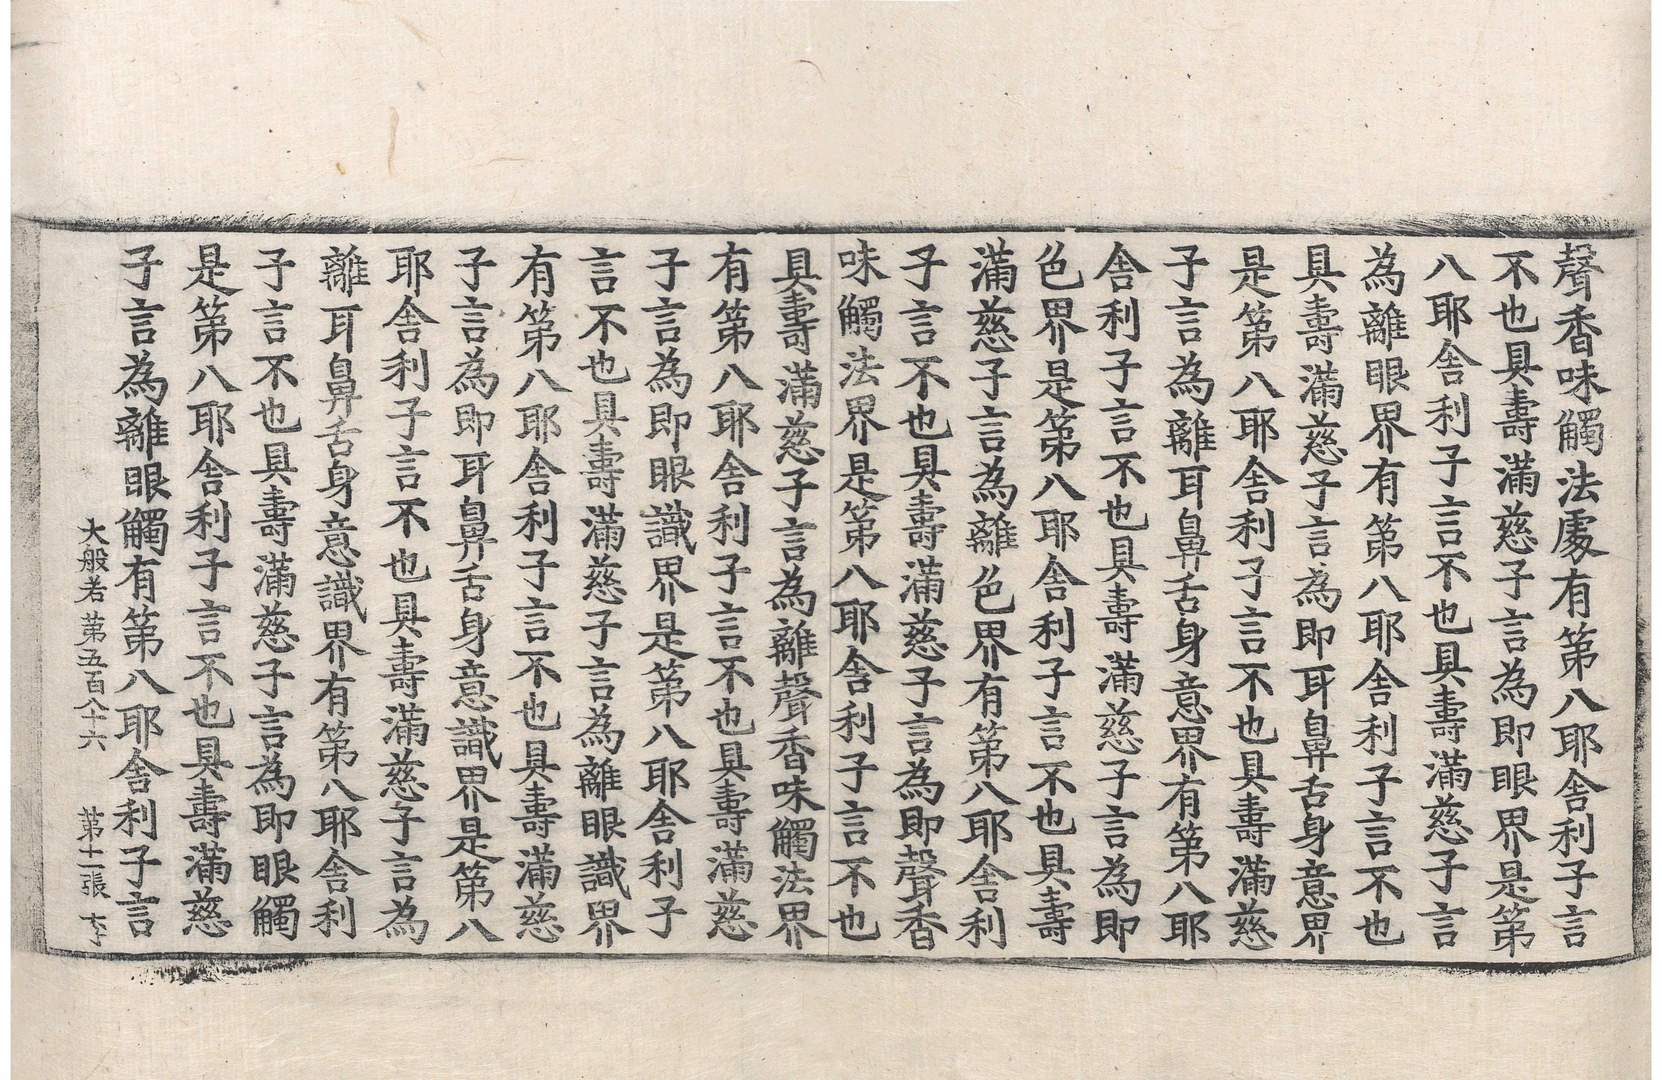 聲香味觸法處有第八耶舍利子言
不也具壽滿慈子言為即眼界是第
八耶舍利子言不也具壽滿慈子言
為離眼界有第八耶舍利子言不也
具壽滿慈子言為即耳鼻舌身意界
是第八耶舍利子言不也具壽滿慈
子言為離耳鼻舌身意界有第八耶
舍利子言不也具壽滿慈子言為即
色界是第八耶舍利子言不也具壽
滿慈子言為離色界有第八耶舍利
子言不也具壽滿慈子言為即聲香
味觸法界是第八耶舍利子言不也
具壽滿慈子言為離聲香味觸法界
有第八耶舍利子言不也具壽滿慈
子言為即眼識界是第八耶舍利子
言不也具壽滿慈子言為離眼識界
有第八耶舍利子言不也具壽滿慈
子言為即耳鼻舌身意識界是第八
耶舍利子言不也具壽滿慈子言為
離耳鼻舌身意識界有第八耶舍利
子言不也具壽滿慈子言為即眼觸
是第八耶舍利子言不也具壽滿慈
子言為離眼觸有第八耶舍利子言
大般若第五百八十六 第十一張 李